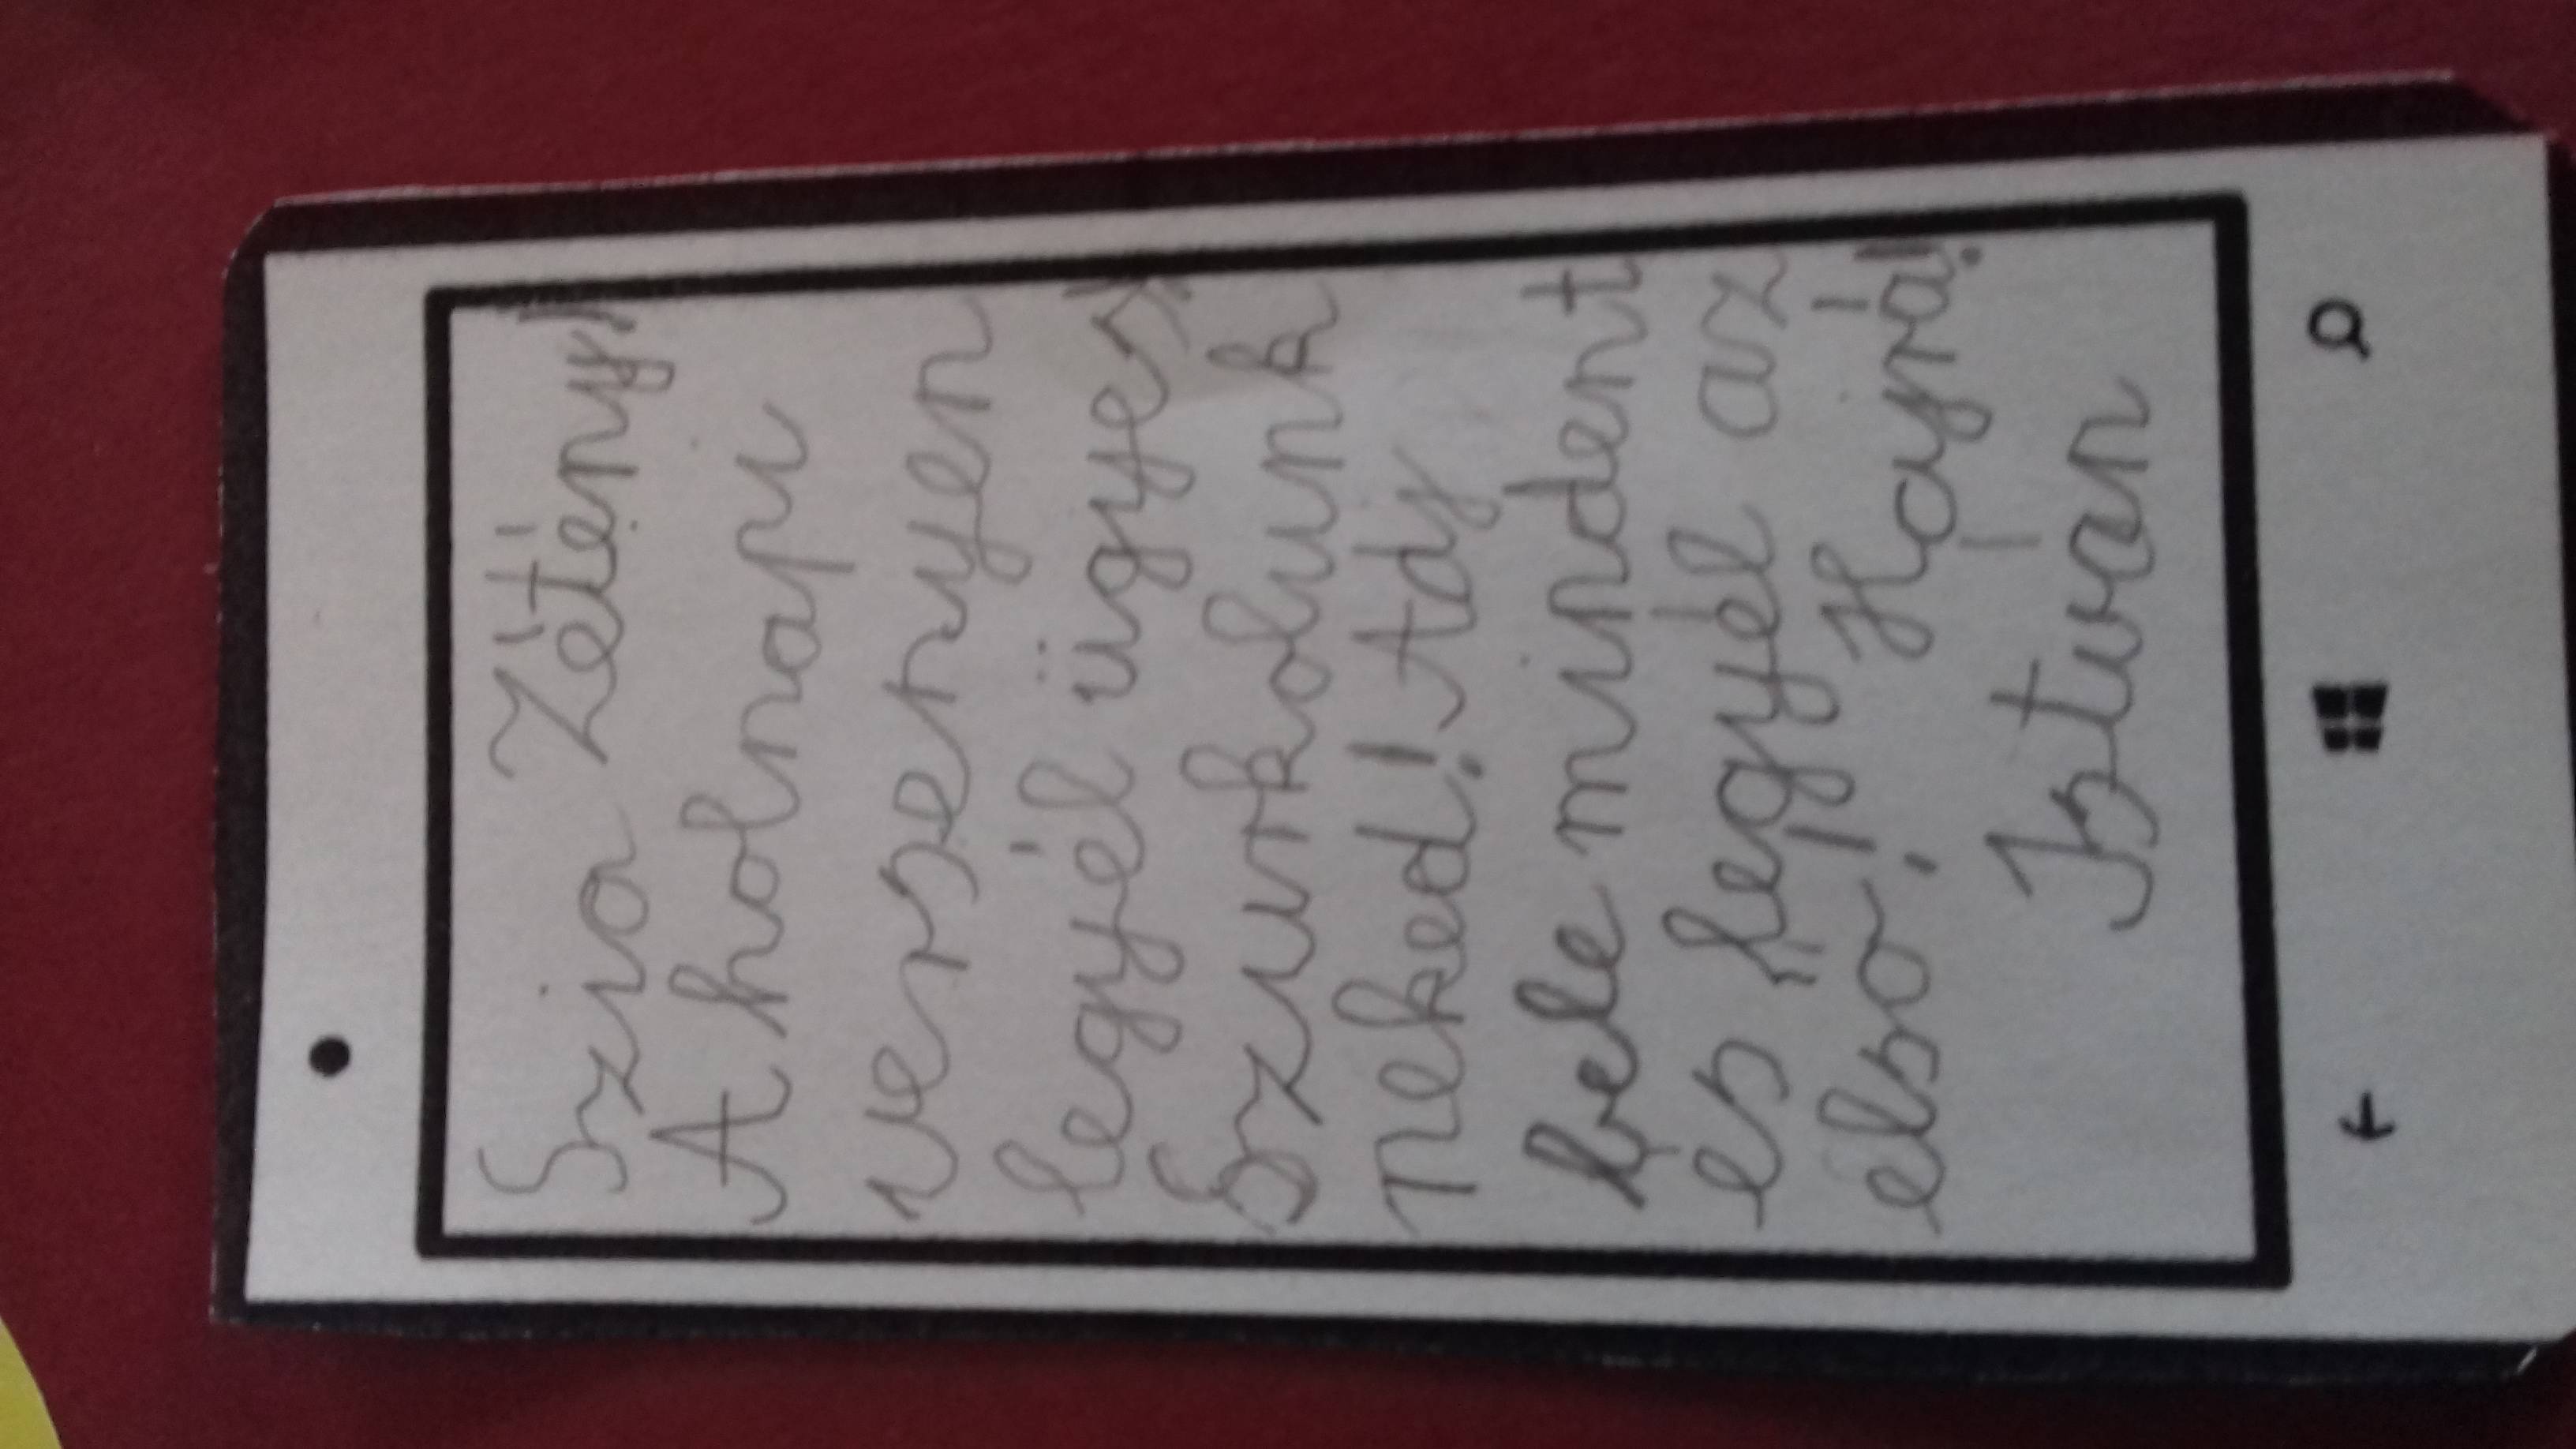 Szia Zétény!
A holnapi
versenyen
legyél ügyes!
Szurkolunk
neked! Adj
bele mindent
és legyél az
első! Hajrá!
István